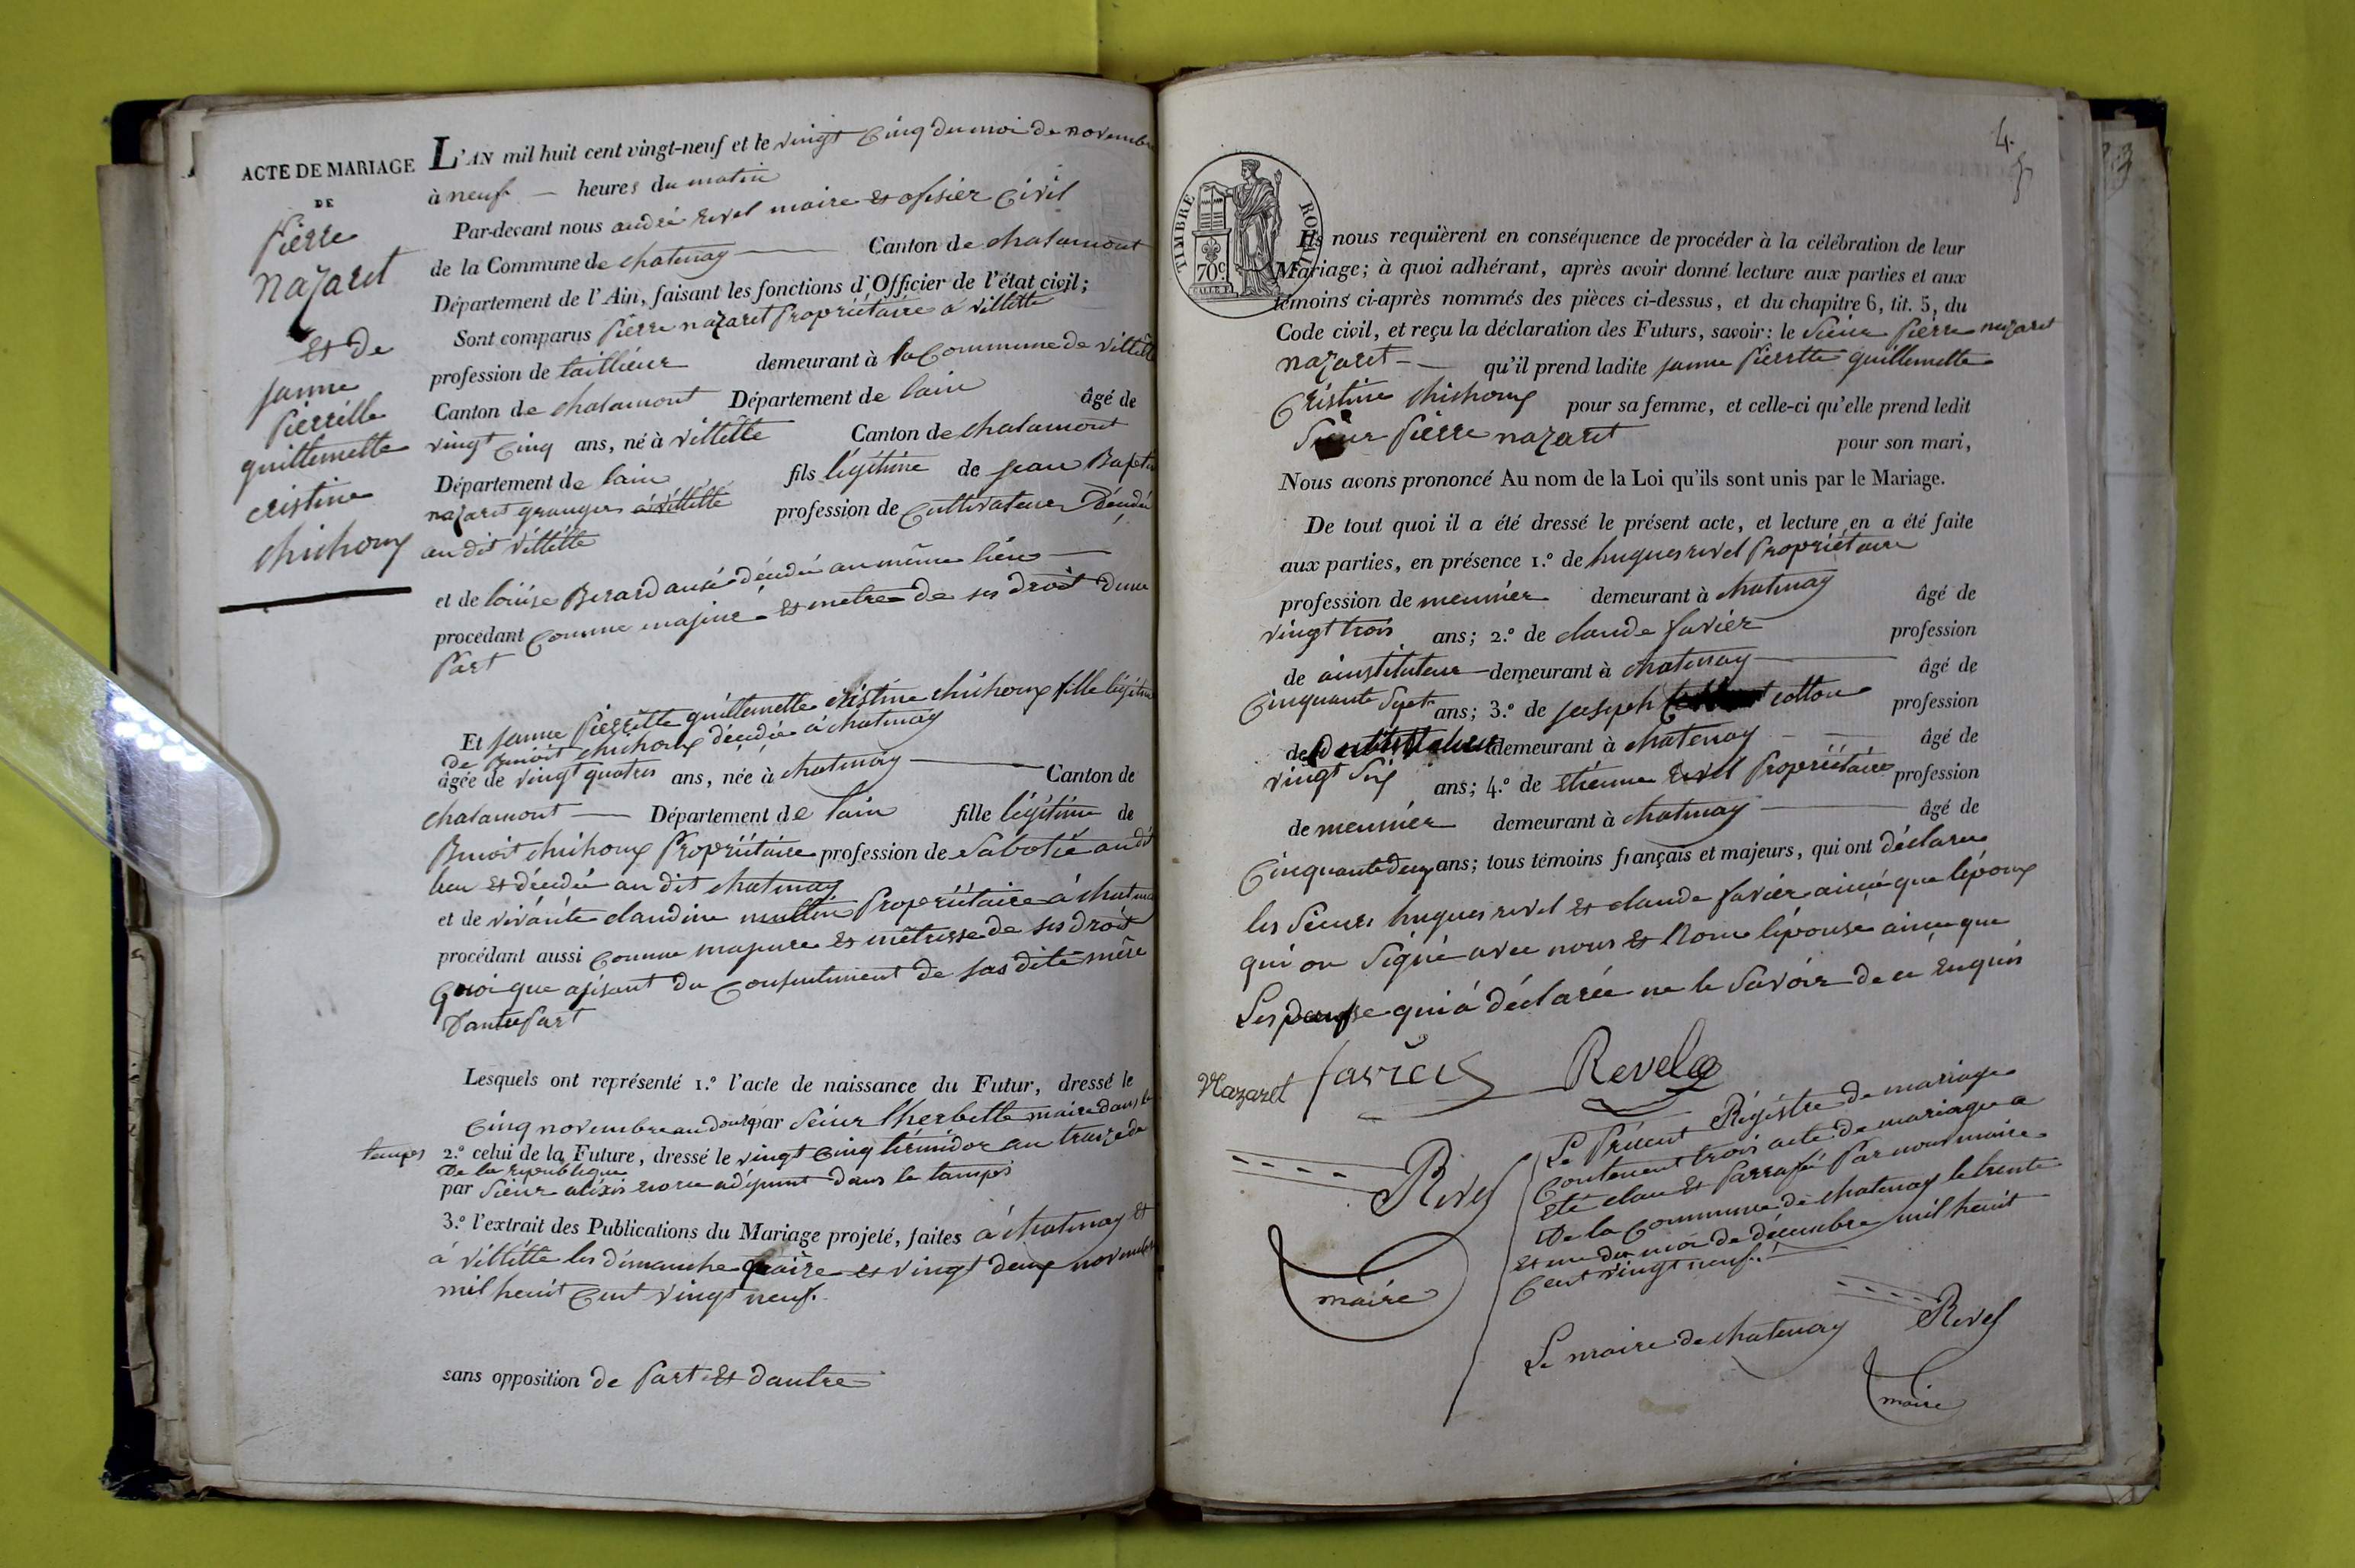 ACTE DE MARIAGE
DE
Pierre
nazaret
et de
janne
Pierrette
guillemette
cristine
chichoux
L'AN mil huit cent vingt-neuf et le vingt cinq du moi de novembre
à neuf — heures du matin
Par-devant nous andré revel maire et ofisier Civil
de la Commune de chatenay — Canton de chalamont
Département de l'Ain, faisant les fonctions d'Officier de l'état civil;
Sont comparus Pierre nazaret Propriétaire a villette
profession de tailliéur demeurant à la Commune de villette
Canton de chalamont Département de lain âgé de
vingt cinq ans, né à villette Canton de chalamont
Département de lain fils légitime de jean Baptiste
nazaret granger à villette profession de Cultivateur Décédé
au dit villette
et de loüise Berard ausé décédé au même liéu —
procédant Comme majeur et metre de ses droit dune
Part
Et janne Pierrette guillemette cristine chichoux fille légitime
de Benoit chichoux décédée à chatenay
âgée de vingt quatres ans, née à chatenay — Canton de
chalamont — Département de lain fille légitime de
Benoit chichoux Propriétaire profession de Sabotié au dit
lieu et décédé au dit chatenay
et de vivante claudine Propriétaire à chatenay
procédant aussi comme majeure et métresse de ses droit
quoi que agisant du Consentement de sas dite mêre
Dautre part
Lesquels ont représenté 1.º l'acte de naissance du Futur, dressé le
Cinq novembre an douze par Seiur lherbette maire dans le
temps 2.º celui de la Future, dressé le vingt cinq térmidor an traize de
De la republique
par Sieur aléxis adjoint dans le tamps
3.º l'extrait des Publications du Mariage projeté, faites à chatenay et
à villette les dimanche et vingt deux novembre
mil heuit Cent vingt neuf.
sans opposition de Part et dautre
4.
TIMBRE ROYAL
70 c.
Ils nous requièrent en conséquence de procéder à la célébration de leur
Mariage; à quoi adhérant, après avoir donné lecture aux parties et aux
témoins ci-après nommés des pièces ci-dessus, et du chapitre 6, tit. 5, du
Code civil, et reçu la déclaration des Futurs, savoir: le Sieur Pierre nazaret
nazaret — qu'il prend ladite janne Pierrtte guillemette
Cristine chichoux pour sa femme, et celle-ci qu'elle prend ledit
Sieur Pierre nazaret pour son mari,
Nous avons prononcé Au nom de la Loi qu'ils sont unis par le Mariage.
De tout quoi il a été dressé le présent acte, et lecture en a été faite
aux parties, en présence 1.º de hugues revel Propriétaire
profession de meunier demeurant à chatenay âgé de
vingt trois ans; 2.º de claude favier profession
de ainstituteur demeurant à chatenay — âgé de
Cinquante Sept ans; 3.º de joseph cotton profession
de demeurant à chatenay — âgé de
vingt Six ans; 4.º de etiénne revel Propriétaire profession
de meunier demeurant à chatenay — âgé de
Cinquante deux ans; tous témoins français et majeurs, qui ont déclaree
les Sieurs hugues revel et claude favier ainsé que lépoux
qui on Signé avec nous et none lépouse ainse que
qui à déclarée ne le Savoir de ce enquis
Nazaret favier Revel
Revel
maire
Le Présent Régistre de mariage
Contenent trois acte de mariague a
été clau et Parrafé Par nous maire
De la Commune de chatenay le trente
et un du moi de décembre mil heuit
Cent vingt neuf.
Le maire de chatenay Revel
maire